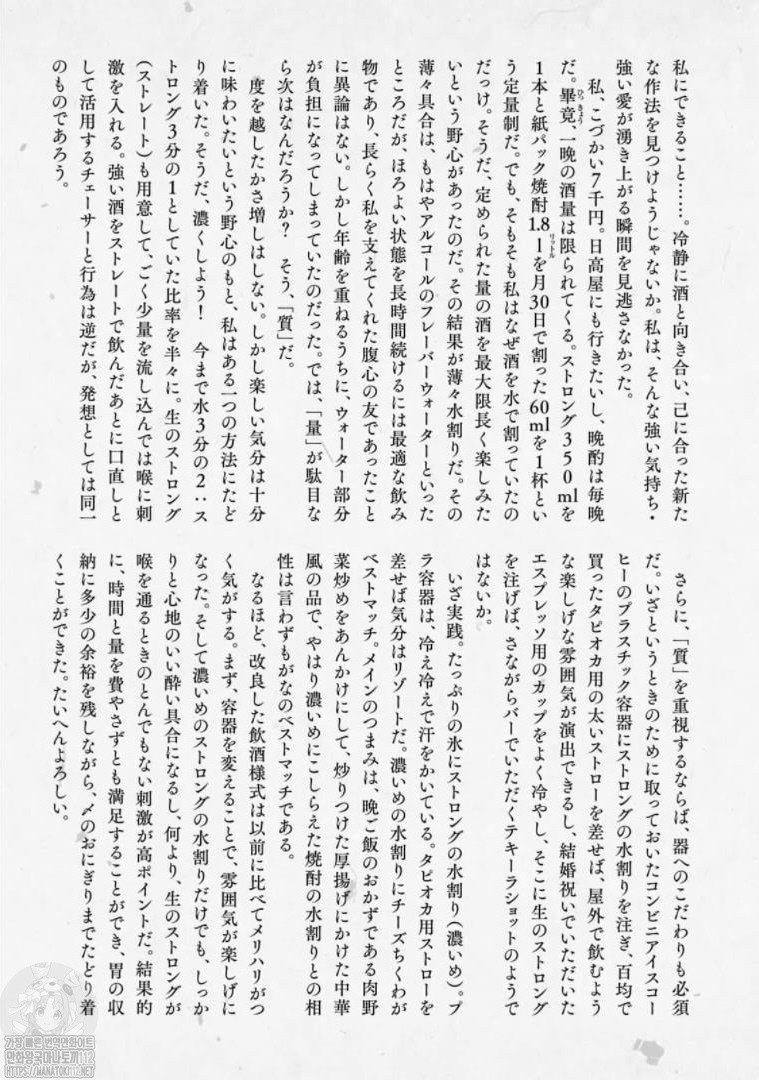 私にできること……。冷静に酒と向き合い、己に合った新た
な作法を見つけようじゃないか。私は、そんな強い気持ち・
強い愛が湧き上がる瞬間を見逃さなかった。
私、こづかい7千円。日高屋にも行きたいし、晩酌は毎晩
だ。畢竟、一晩の酒量は限られてくる。ストロング350mlを
1本と紙パック焼酎1.8lを月30日で割った60mlを1杯とい
う定量制だ。でも、そもそも私はなぜ酒を水で割っていたの
だっけ。そうだ、定められた量の酒を最大限長く楽しみた
いという野心があったのだ。その結果が薄々水割りだ。その
薄々具合は、もはやアルコールのフレーバーウォーターといった
ところだが、ほろよい状態を長時間続けるには最適な飲み
物であり、長らく私を支えてくれた腹心の友であったこと
に異論はない。しかし年齢を重ねるうちに、ウォーター部分
が負担になってしまっていたのだった。では、「量」が駄目な
ら次はなんだろうか? そう、「質」だ。
度を越したかさ増しはしない。しかし楽しい気分は十分
に味わいたいという野心のもと、私はある一つの方法にたど
り着いた。そうだ、濃くしよう! 今まで水3分の2:ス
トロング3分の1としていた比率を半々に。生のストロング
(ストレート)も用意して、ごく少量を流し込んでは喉に刺
激を入れる。強い酒をストレートで飲んだあとに口直しと
して活用するチェーサーと行為は逆だが、発想としては同一
のものであろう。
さらに、「質」を重視するならば、器へのこだわりも必須
だ。いざというときのために取っておいたコンビニアイスコー
ヒーのプラスチック容器にストロングの水割りを注ぎ、百均で
買ったタピオカ用の太いストローを差せば、屋外で飲むよう
な楽しげな雰囲気が演出できるし、結婚祝いでいただいた
エスプレッソ用のカップをよく冷やし、そこに生のストロング
を注げば、さながらバーでいただくテキーラショットのようで
はないか。
いざ実践。たっぷりの氷にストロングの水割り(濃いめ)。プ
ラ容器は、冷え冷えで汗をかいている。タピオカ用ストローを
差せば気分はリゾートだ。濃いめの水割りにチーズちくわが
ベストマッチ。メインのつまみは、晩ご飯のおかずである肉野
菜炒めをあんかけにして、炒りつけた厚揚げにかけた中華
風の品で、やはり濃いめにこしらえた焼酎の水割りとの相
性は言わずもがなのベストマッチである。
なるほど、改良した飲酒様式は以前に比べてメリハリがつ
く気がする。まず、容器を変えることで、雰囲気が楽しげに
なった。そして濃いめのストロングの水割りだけでも、しっか
りと心地のいい酔い具合になるし、何より、生のストロングが
喉を通るときのとんでもない刺激が高ポイントだ。結果的
に、時間と量を費やさずとも満足することができ、胃の収
納に多少の余裕を残しながら、〆のおにぎりまでたどり着
くことができた。たいへんよろしい。
가장 빠른 번역만화사이트
만화왕국마나토끼112
HTTPS://MANATOKI112.NET